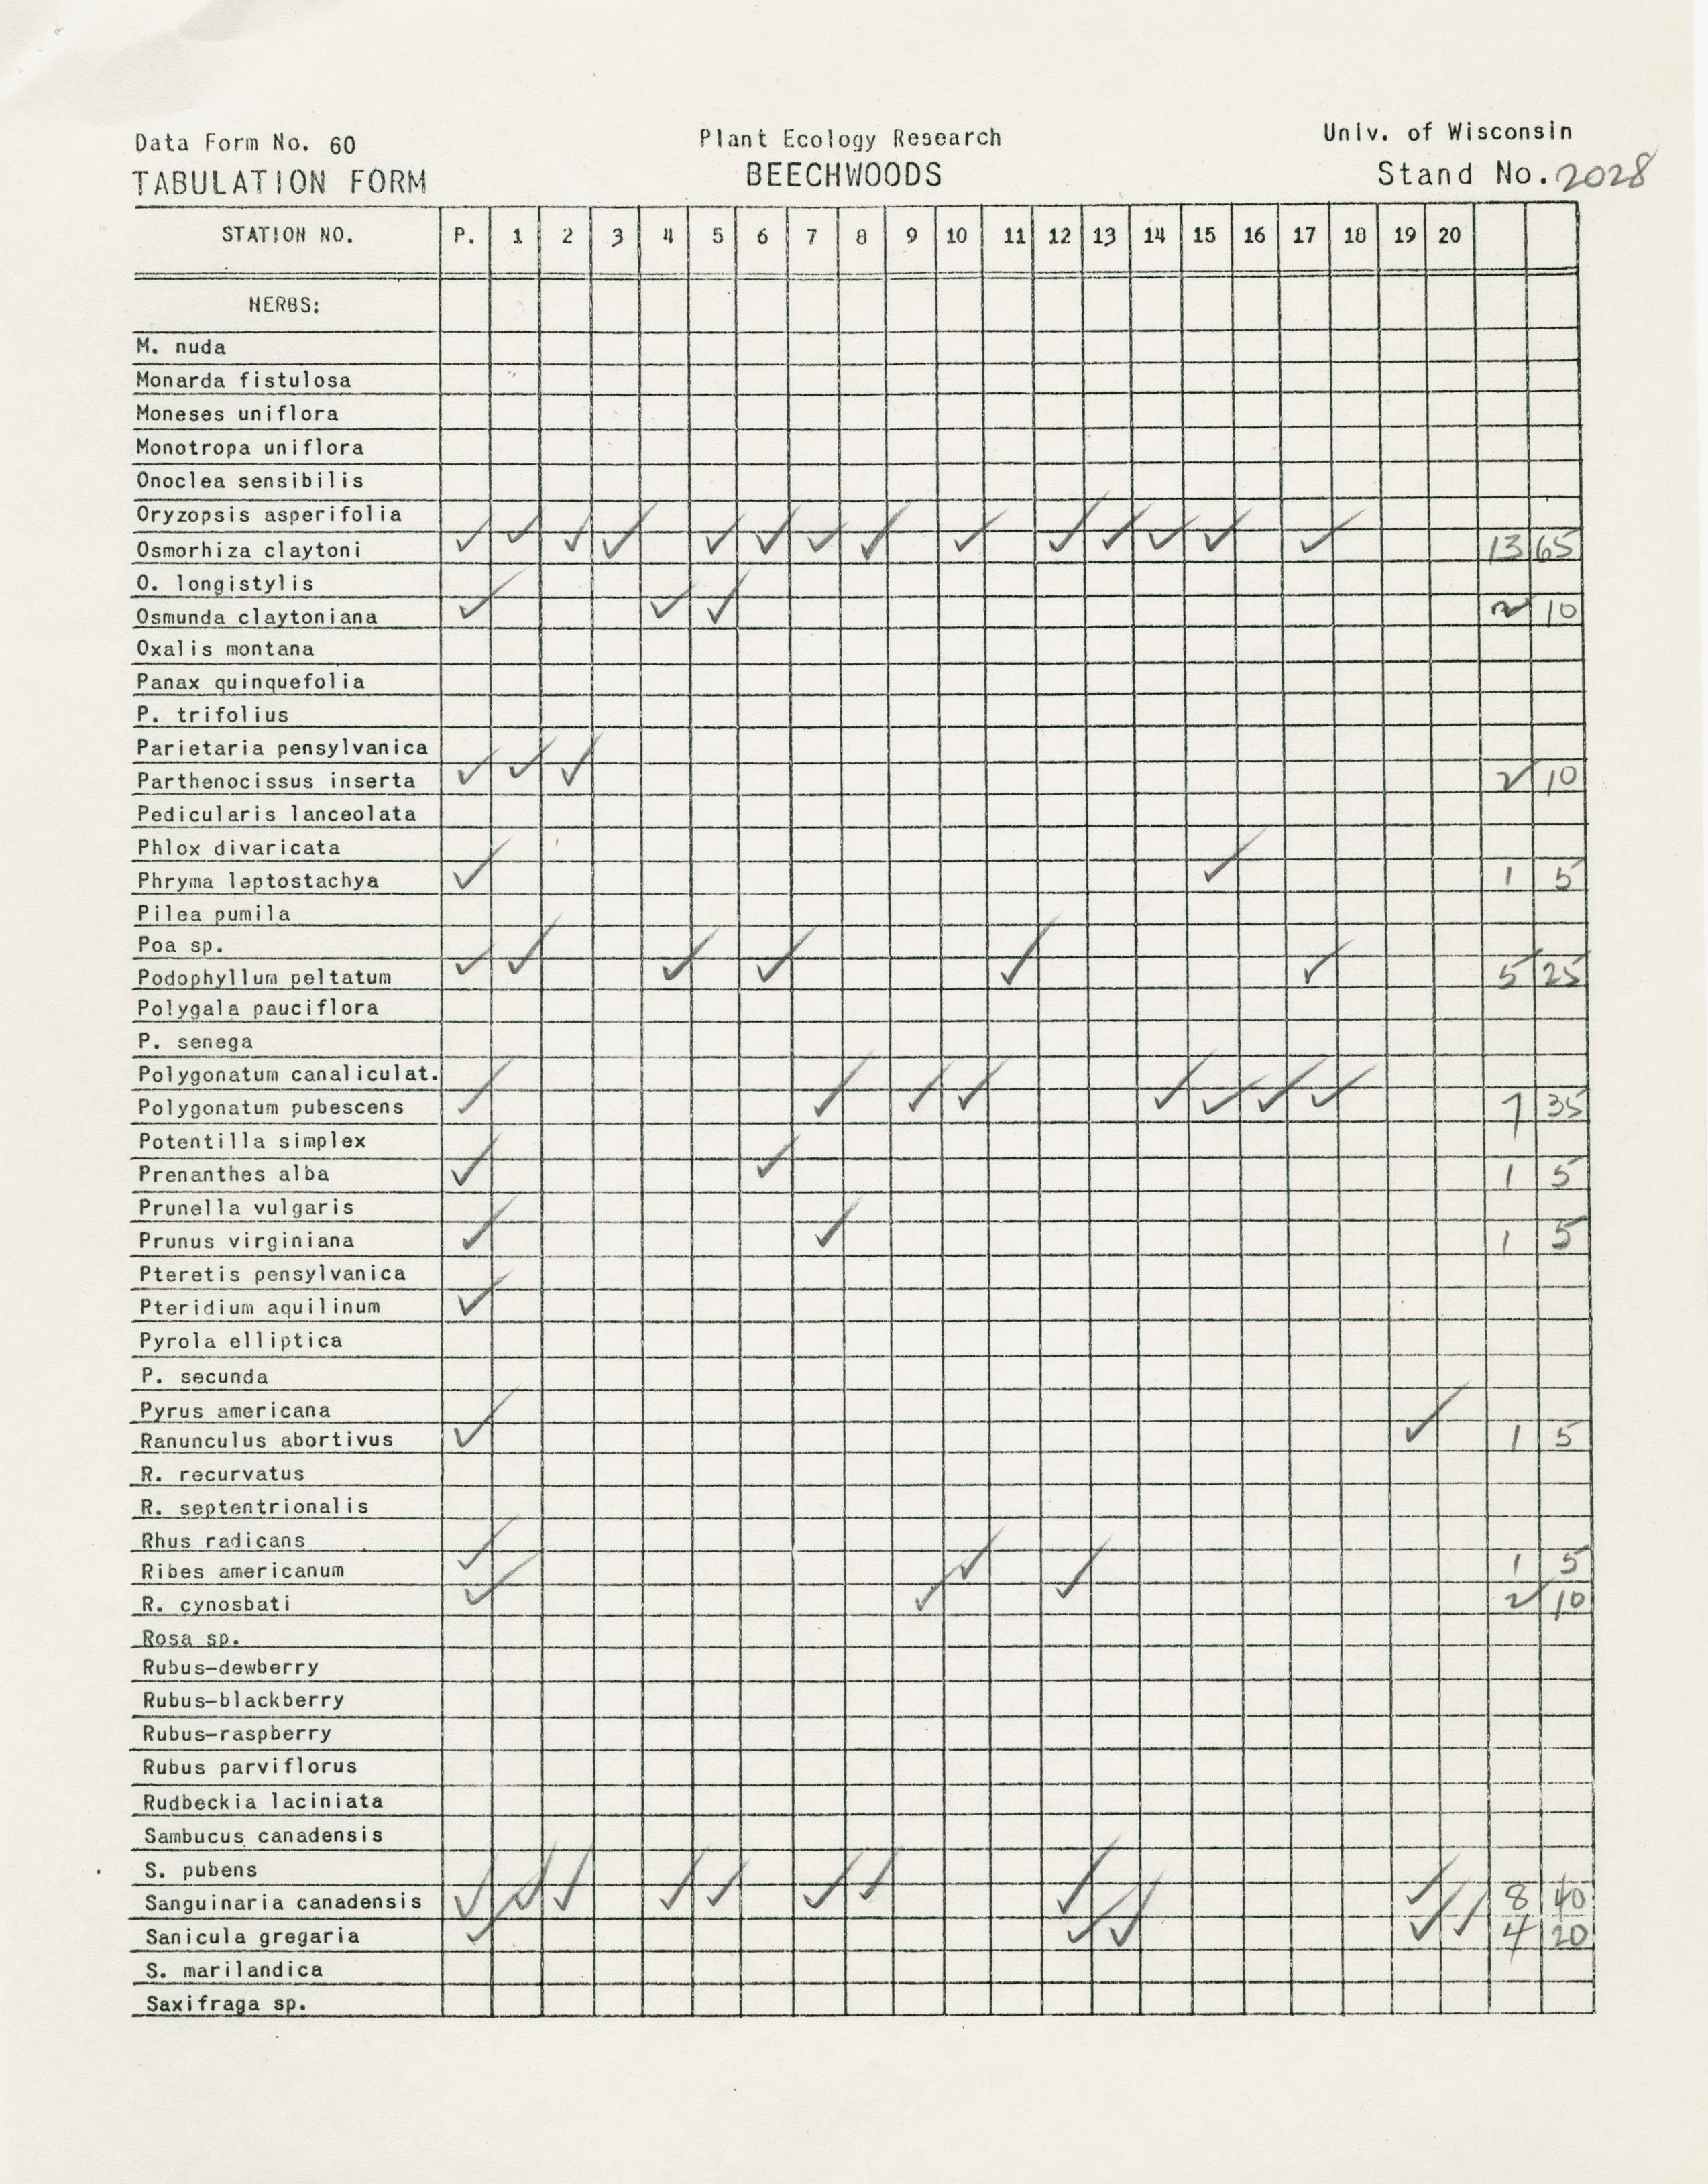 Data Form No. 60 Plant Ecology Research Univ. of Wisconsin
TABULATION FORM BEECHWOODS Stand No. 2028
STATION NO. P. 1 2 3 4 5 6 7 8 9 10 11 12 13 14 15 16 17 18 19 20
HERBS:
M. nuda
Monarda fistulosa
Moneses uniflora
Monotropa uniflora
Onoclea sensibilis
Oryzopsis asperifolia
Osmorhiza claytoni ✓ ✓ ✓ ✓ ✓ ✓ ✓ ✓ ✓ ✓ ✓ ✓ ✓ ✓ 13 65
O. longistylis
Osmunda claytoniana ✓ ✓ ✓ 2 10
Oxalis montana
Panax quinquefolia
P. trifolius
Parietaria pensylvanica
Parthenocissus inserta ✓ ✓ ✓ 2 10
Pedicularis lanceolata
Phlox divaricata
Phryma leptostachya ✓ ✓ 1 5
Pilea pumila
Poa sp.
Podophyllum peltatum ✓ ✓ ✓ ✓ ✓ ✓ 5 25
Polygala pauciflora
P. senega
Polygonatum canaliculat.
Polygonatum pubescens ✓ ✓ ✓ ✓ ✓ ✓ ✓ ✓ 7 35
Potentilla simplex
Prenanthes alba ✓ ✓ 1 5
Prunella vulgaris
Prunus virginiana ✓ ✓ 1 5
Pteretis pensylvanica
Pteridium aquilinum ✓
Pyrola elliptica
P. secunda
Pyrus americana
Ranunculus abortivus ✓ ✓ 1 5
R. recurvatus
R. septentrionalis
Rhus radicans
Ribes americanum ✓ ✓ 1 5
R. cynosbati ✓ ✓ ✓ 2 10
Rosa sp.
Rubus-dewberry
Rubus-blackberry
Rubus-raspberry
Rubus parviflorus
Rudbeckia laciniata
Sambucus canadensis
S. pubens
Sanguinaria canadensis ✓ ✓ ✓ ✓ ✓ ✓ ✓ ✓ ✓ 8 40
Sanicula gregaria ✓ ✓ ✓ ✓ ✓ 4 20
S. marilandica
Saxifraga sp.